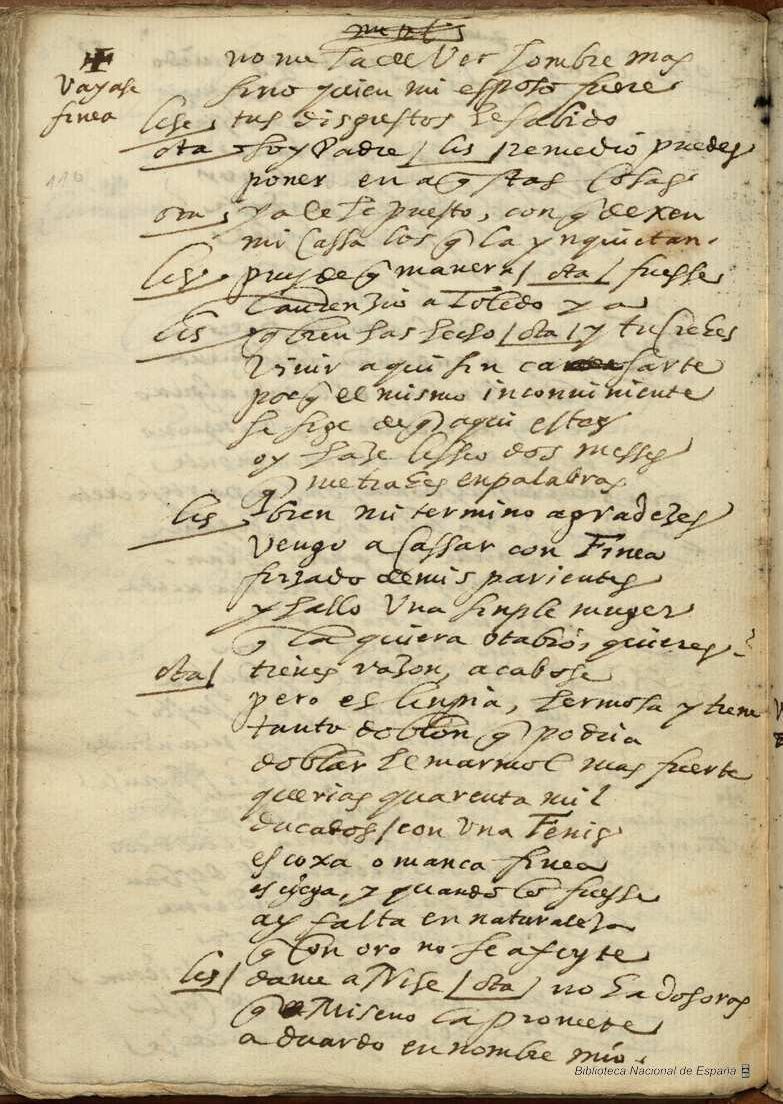 no me ha de ver hombre mas
sino quien mi esposo fuere
✠
Vayase
finea
lise tus disgustos he sabido
ota soy Padre / lis / remedio puedes
poner en aqstas cosas
ota ya le he puesto, con q dexen
mi cassa los q la ynquietan.
lis pues de q manera / ota / fuesse
laurenzio a Toledo ya
lis q bien has hecho / ota / y tu crees
vivir aqui sin casarte
porq el mismo inconuiniente
se sige de q aqui estes
oy haze liseo dos messes
q me traes en palabras
lis bien mi termino agradezes
vengo a cassar con Finea
forzado de mis parientes
y hallo Una simple muger
q la quiera otabio, quieres
ota / tienes razon, acabose
pero es linpia, hermosa y tiene
tanto doblon q podria
doblar el marmol mas fuerte
querias quarenta mil
ducados / con Una Fenis
es coxa o manca finea
es ciega, y quando lo fuesse
ay falta en naturaleza
q con oro no se afeyte
lis / dame a Nise / ota / no ha dos oras
q Miseno la promete
a duardo en nombre mio.
Biblioteca Nacional de España